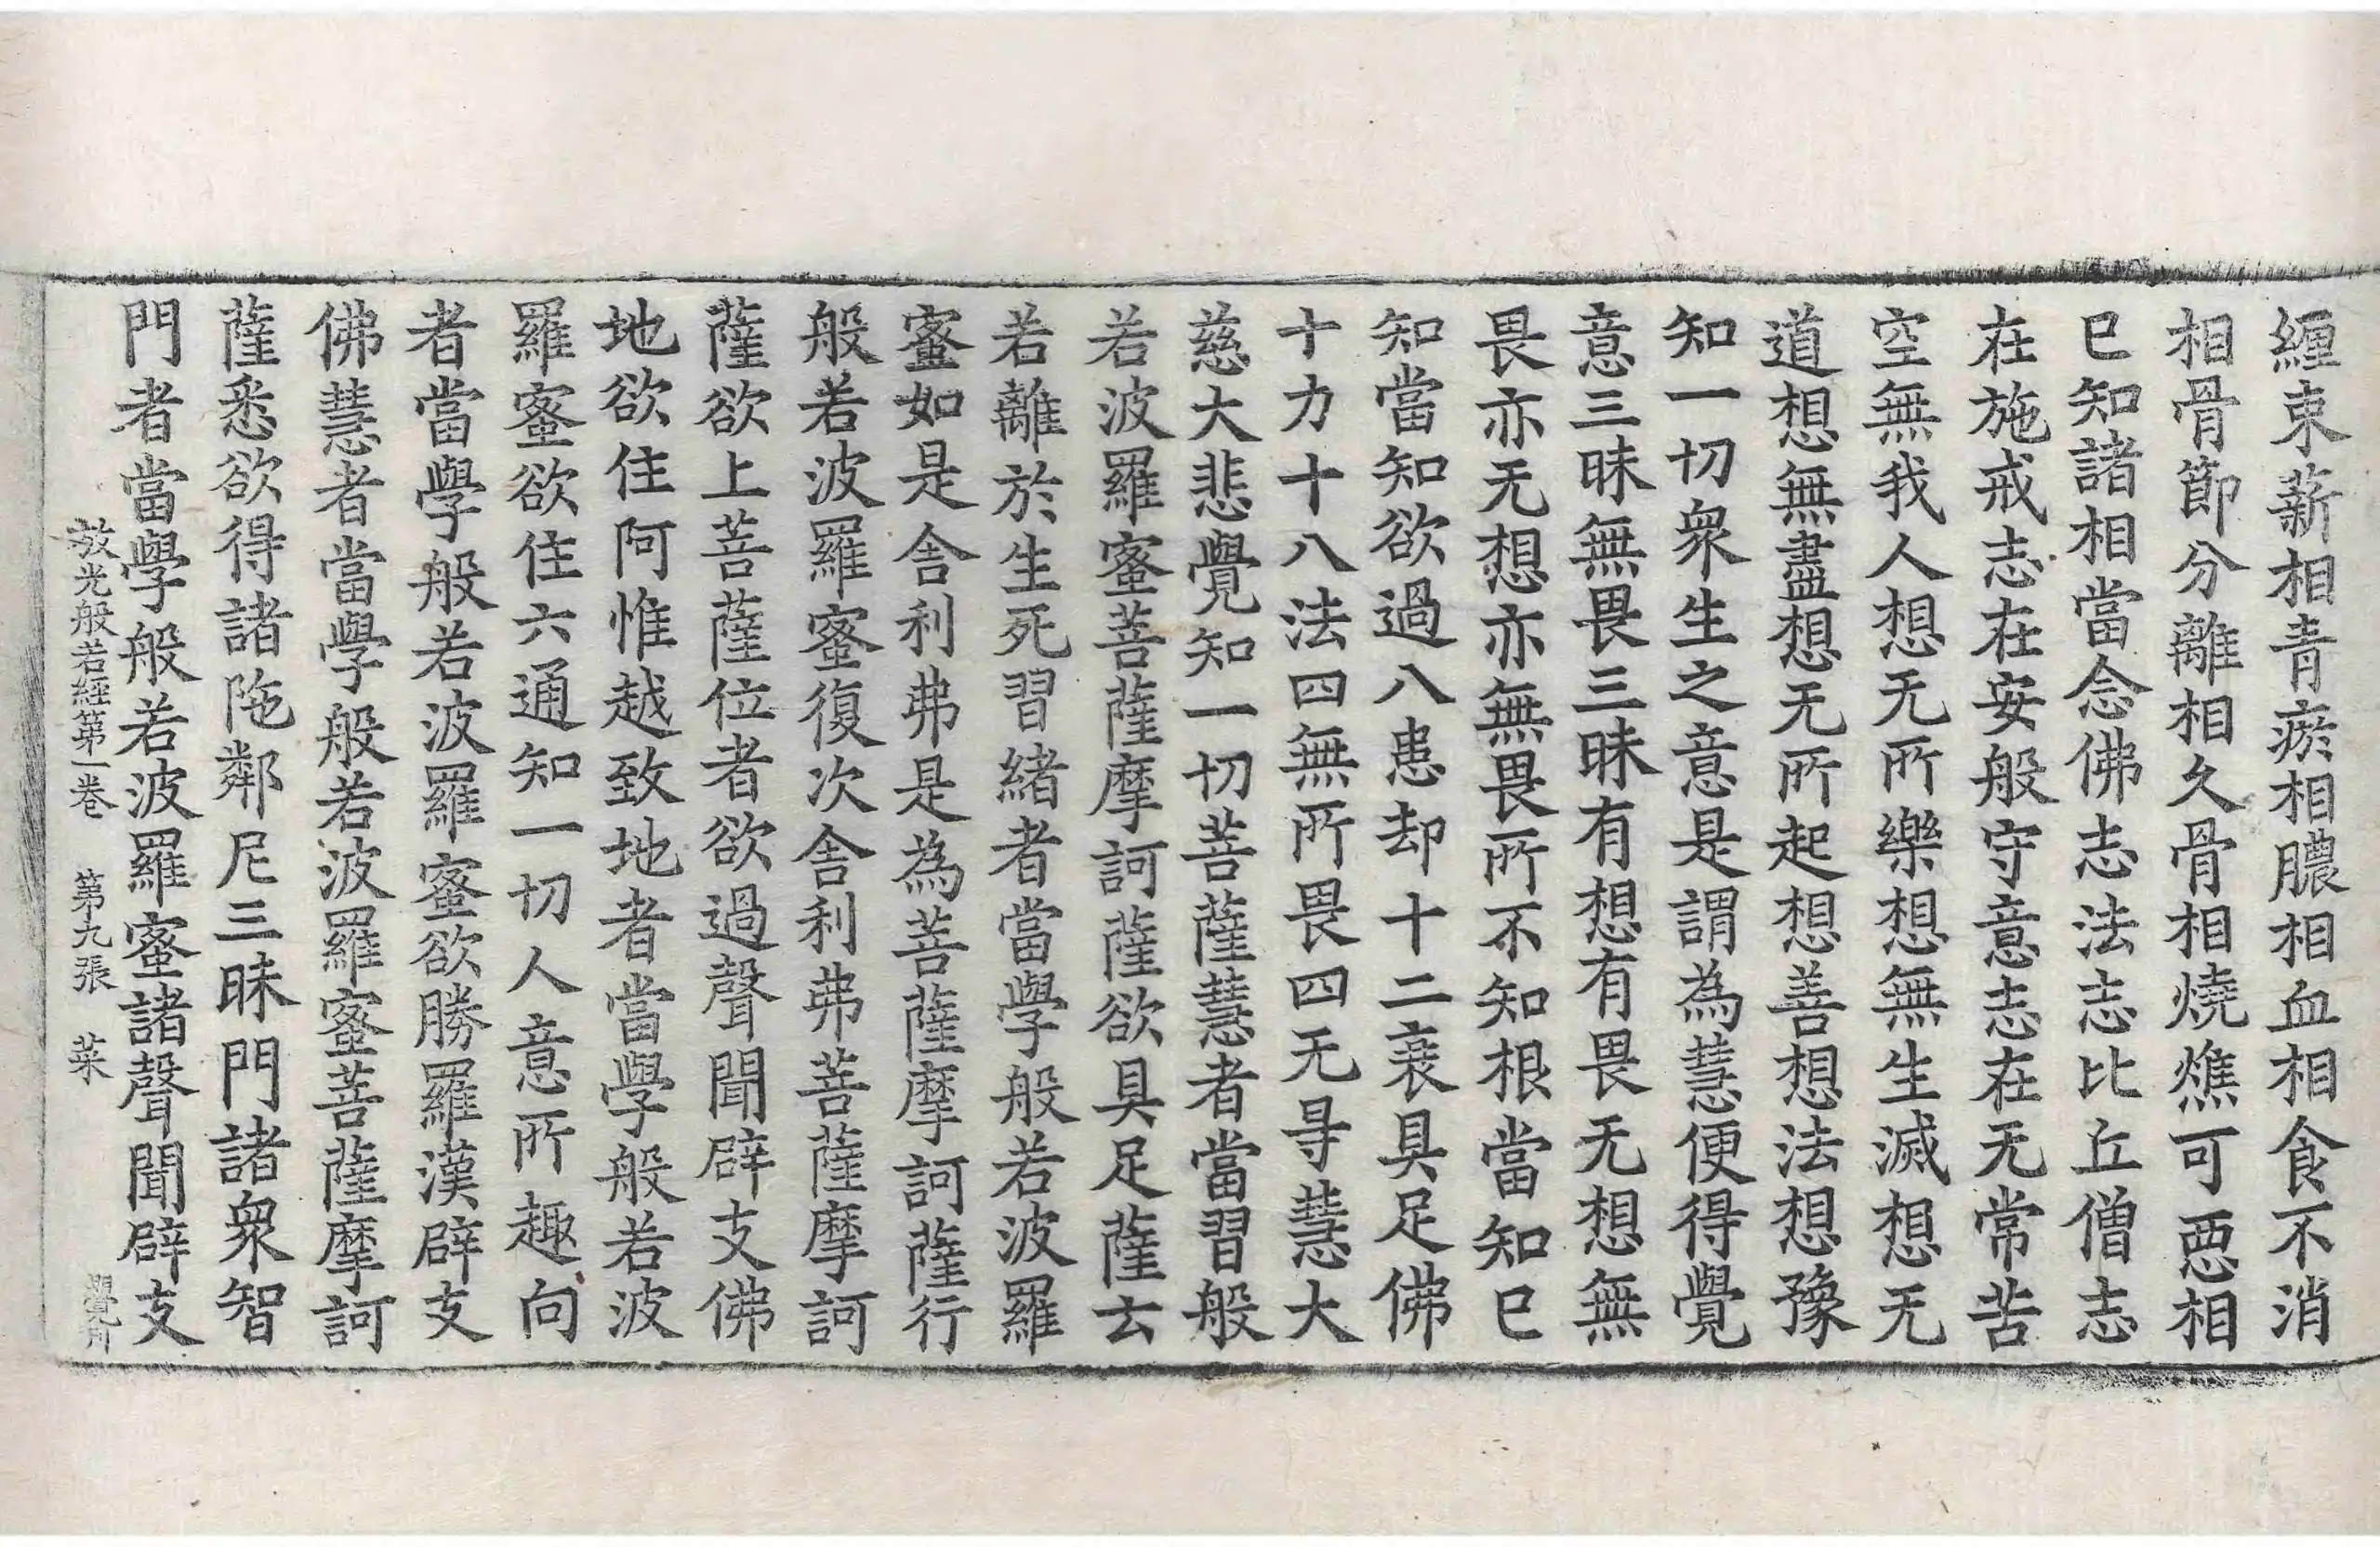 纏束薪相青瘀相膿相血相食不消
相骨節分離相久骨相燒燋可惡相
已知諸相當念佛志法志比丘僧志
在施戒志在安般守意志在无常苦
空無我人想无所樂想無生滅想无
道想無盡想无所起想善想法想豫
知一切衆生之意是謂為慧便得覺
意三昧無畏三昧有想有畏无想無
畏亦无想亦無畏所不知根當知已
知當知欲過八患却十二衰具足佛
十力十八法四無所畏四无㝵慧大
慈大悲覺知一切菩薩慧者當習般
若波羅蜜菩薩摩訶薩欲具足薩云
若離於生死習緒者當學般若波羅
蜜如是舍利弗是為菩薩摩訶薩行
般若波羅蜜復次舍利弗菩薩摩訶
薩欲上菩薩位者欲過聲聞辟支佛
地欲住阿惟越致地者當學般若波
羅蜜欲住六通知一切人意所趣向
者當學般若波羅蜜欲勝羅漢辟支
佛慧者當學般若波羅蜜菩薩摩訶
薩悉欲得諸陁鄰尼三昧門諸衆智
門者當學般若波羅蜜諸聲聞辟支
放光般若經第一卷 第九張 菜